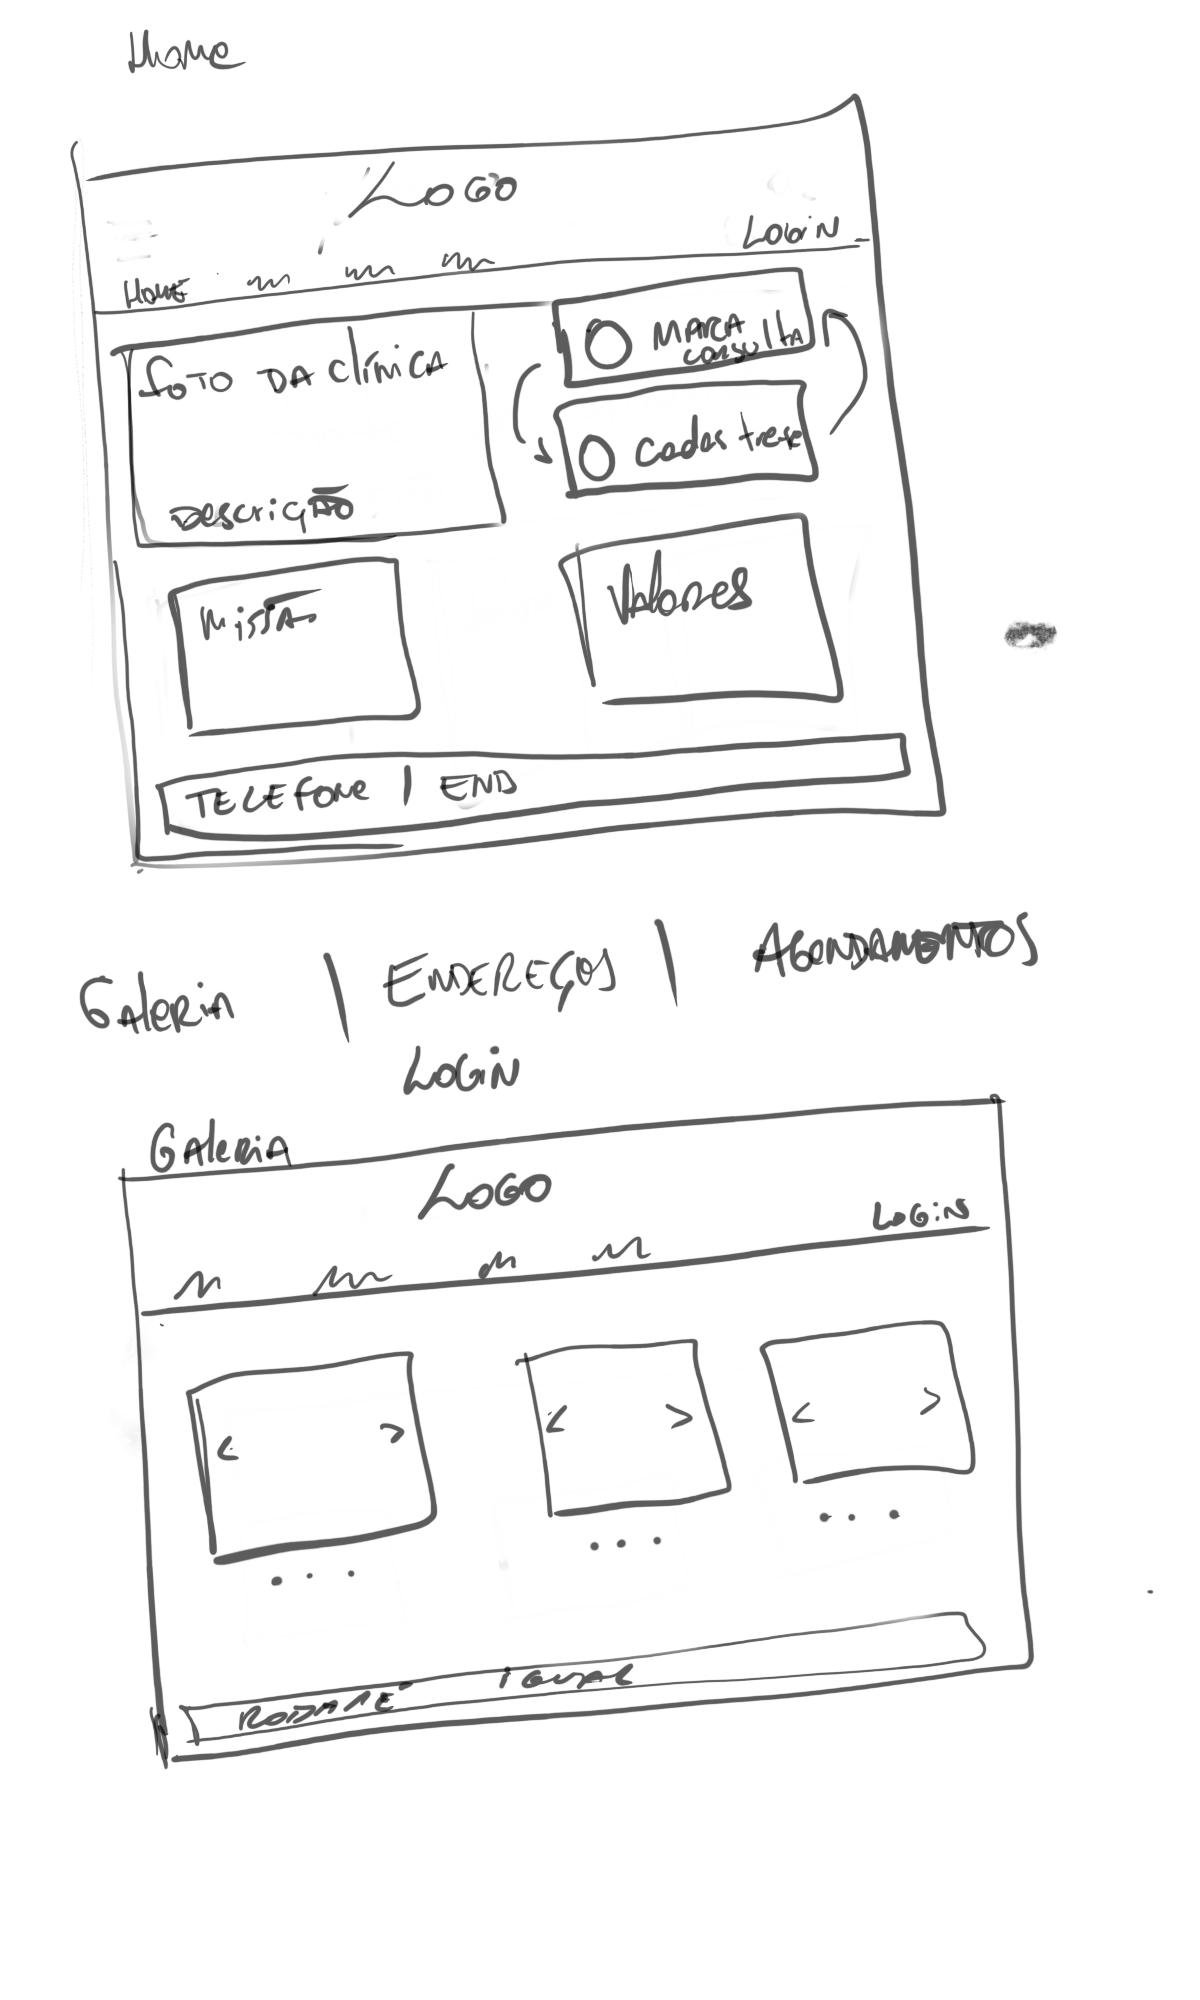 Home
LOGO
LOGIN
HOME
FOTO DA CLÍNICA
DESCRIÇÃO
MARCA
CONSULTA
Cadastre-se
MISSÃO
VALORES
TELEFONE | END
GALERIA | ENDEREÇOS | AGENDAMENTOS
LOGIN
GALERIA
LOGO
LOGIN
< >
< >
< >
RODAPÉ IGUAL